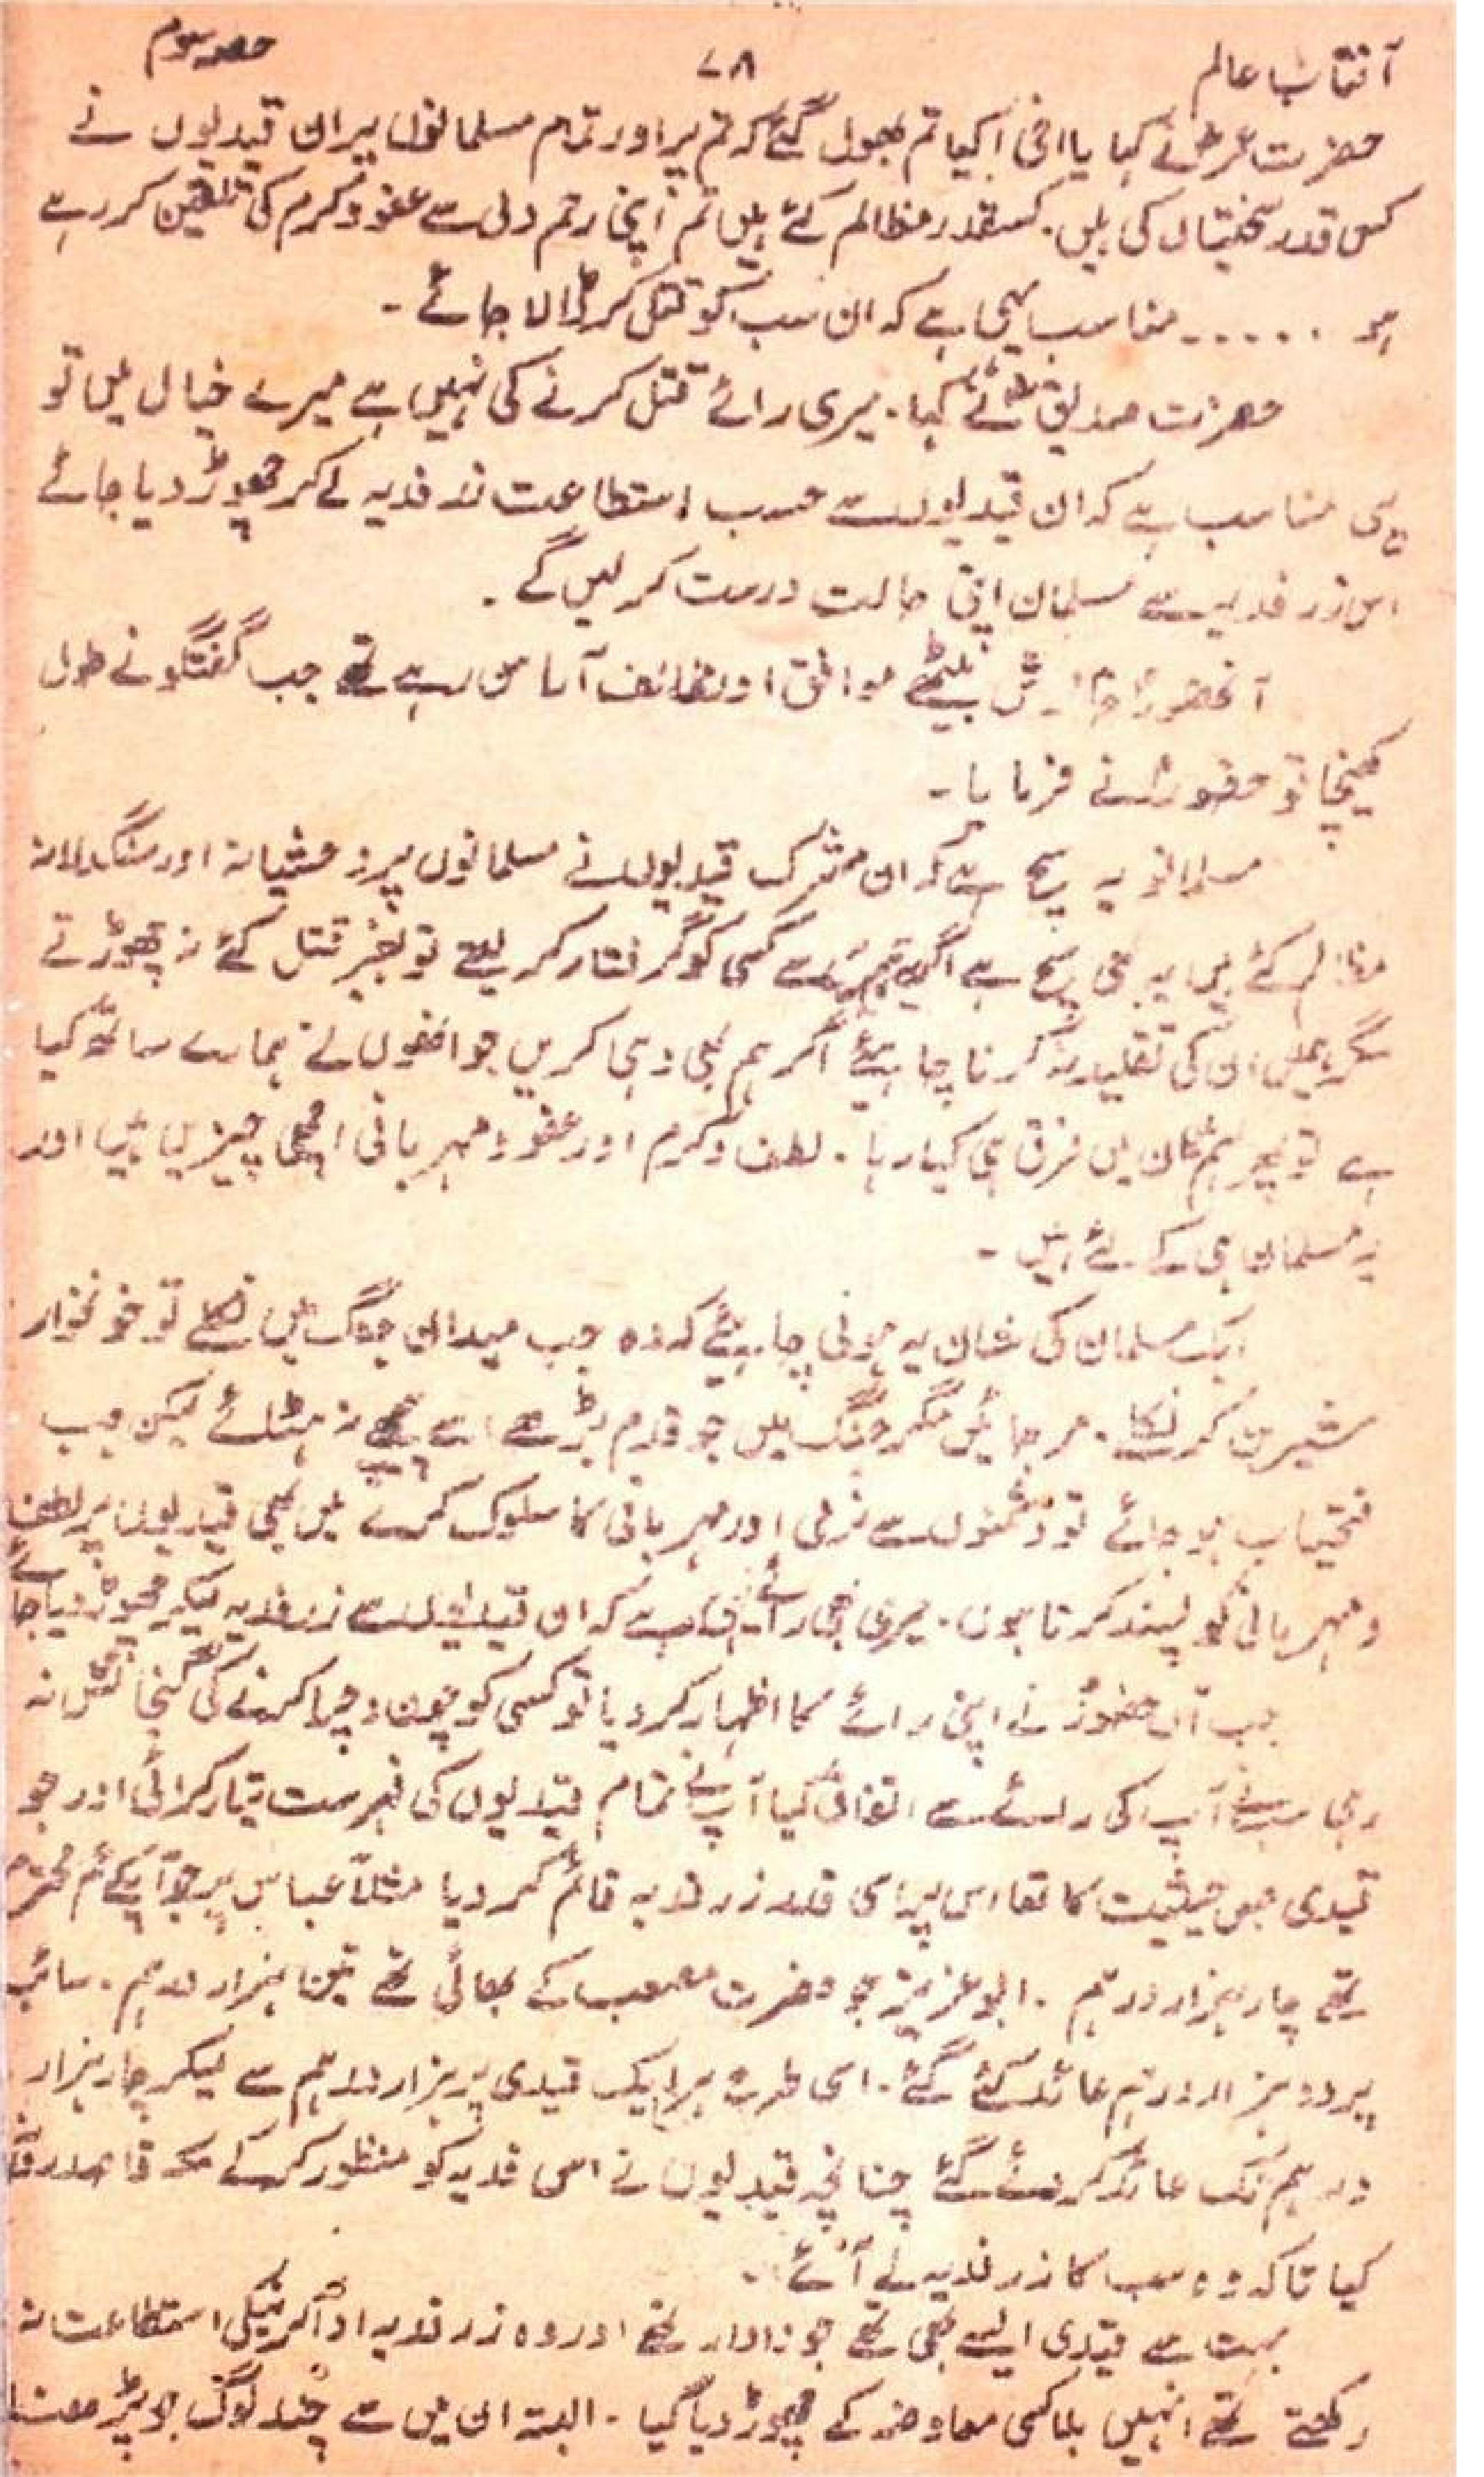 آفتاب عالم ۷۸ حصہ سوم
حضرت عمرؓ نے کہا یا اخی! کیا تم بھول گئے کہ تم پر اور تمام مسلمانوں پر ان قیدیوں نے
کس قدر سختیاں کی ہیں۔ کسقدر مظالم کئے ہیں تم اپنی رحم دلی سے عفو و کرم کی تلقین کر رہے
ہو ...... مناسب یہی ہے کہ ان سب کو قتل کر ڈالا جائے ۔
حضرت صدیقؓ نے کہا۔ میری رائے قتل کرنے کی نہیں ہے میرے خیال میں تو
یہی مناسب ہے کہ ان قیدیوں سے حسب استطاعت زر فدیہ لے کر چھوڑ دیا جائے
اس زر فدیہ سے مسلمان اپنی حالت درست کر لیں گے ۔
آنحضورؐ خاموش بیٹھے موافق اور مخالف آراء سن رہے تھے جب گفتگو نے طول
کھینچا تو حضورؐ نے فرمایا ۔
مسلمانو یہ سچ ہے کہ ان مشرک قیدیوں نے مسلمانوں پر وحشیانہ اور سنگدلانہ
مظالم کئے ہیں یہ بھی سچ ہے اگر یہ تم میں سے کسی کو گرفتار کر لیتے تو بغیر قتل کئے نہ چھوڑتے
مگر ہمیں ان کی تقلید نہ کرنا چاہیئے اگر ہم بھی وہی کریں جو انھوں نے ہمارے ساتھ کیا
ہے تو پھر ہم میں ان میں فرق ہی کیا رہا ۔ لطف و کرم اور عفو و مہربانی اچھی چیزیں ہیں اور
یہ مسلمان ہی کے لئے ہیں ۔
ایک مسلمان کی شان یہ ہونی چاہیئے کہ وہ جب میدان جنگ میں نکلے تو خونخوار
شیر بن کر نکلے ۔ مر جائے مگر جنگ میں جو قدم بڑھے اسے پیچھے نہ ہٹائے لیکن جب
فتحیاب ہو جائے تو دشمنوں سے نرمی اور مہربانی کا سلوک کرے میں بھی قیدیوں پر لطف
و مہربانی کو پسند کرتا ہوں ۔ میری بھی رائے یہی ہے کہ ان قیدیوں سے زر فدیہ لیکر چھوڑ دیا جائے
جب آں حضورؐ نے اپنی رائے کا اظہار کر دیا تو کسی کو چون و چرا کرنے کی گنجائش نہ
رہی سب نے آپ کی رائے سے اتفاق کیا آپؐ نے تمام قیدیوں کی فہرست تیار کرائی اور جو
قیدی جس حیثیت کا تھا اس پر اسی قدر زر فدیہ قائم کر دیا مثلاً عباس پر جو آپ کے عم محترم
تھے چار ہزار درہم ۔ ابو عزیز جو حضرت مصعب کے بھائی تھے تین ہزار درہم ۔ سائب
پر دو ہزار درہم عائد کئے گئے ۔ اسی طرح ہر ایک قیدی پر ہزار درہم سے لیکر چار ہزار
درہم تک عائد کر دئے گئے چنانچہ قیدیوں نے اسی فدیہ کو منظور کر کے مکہ قاصد روانہ
کیا تاکہ وہ سب کا زر فدیہ لے آئے ۔
بہت سے قیدی ایسے بھی تھے جو نادار تھے اور وہ زر فدیہ ادا کرنیکی استطاعت نہ
رکھتے تھے انہیں بلا کسی معاوضہ کے چھوڑ دیا گیا ۔ البتہ ان میں سے چند لوگ جو پڑھنا